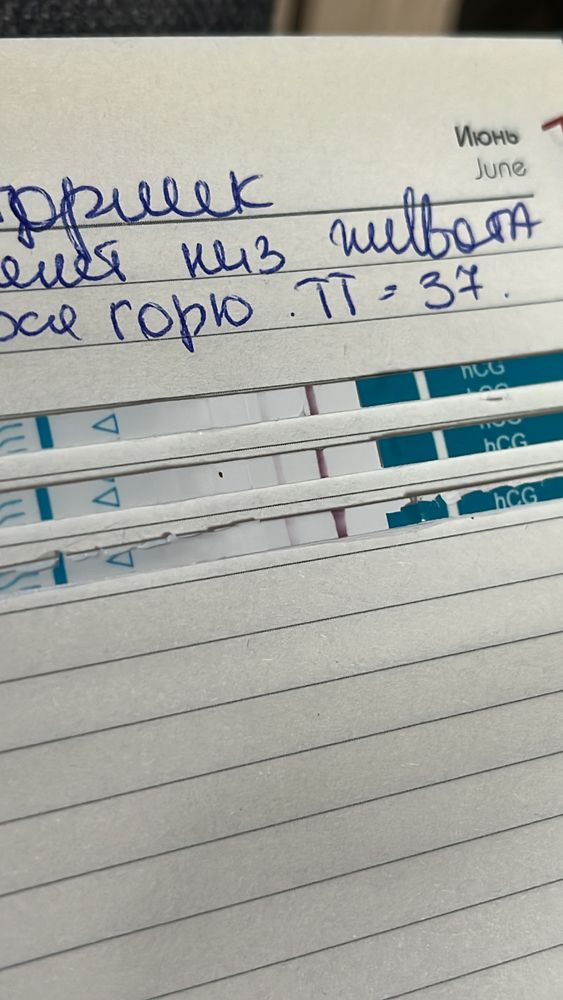 Июнь
June
торник
низ живота
горю. ТТ = 37.
hCG
hCG
hCG